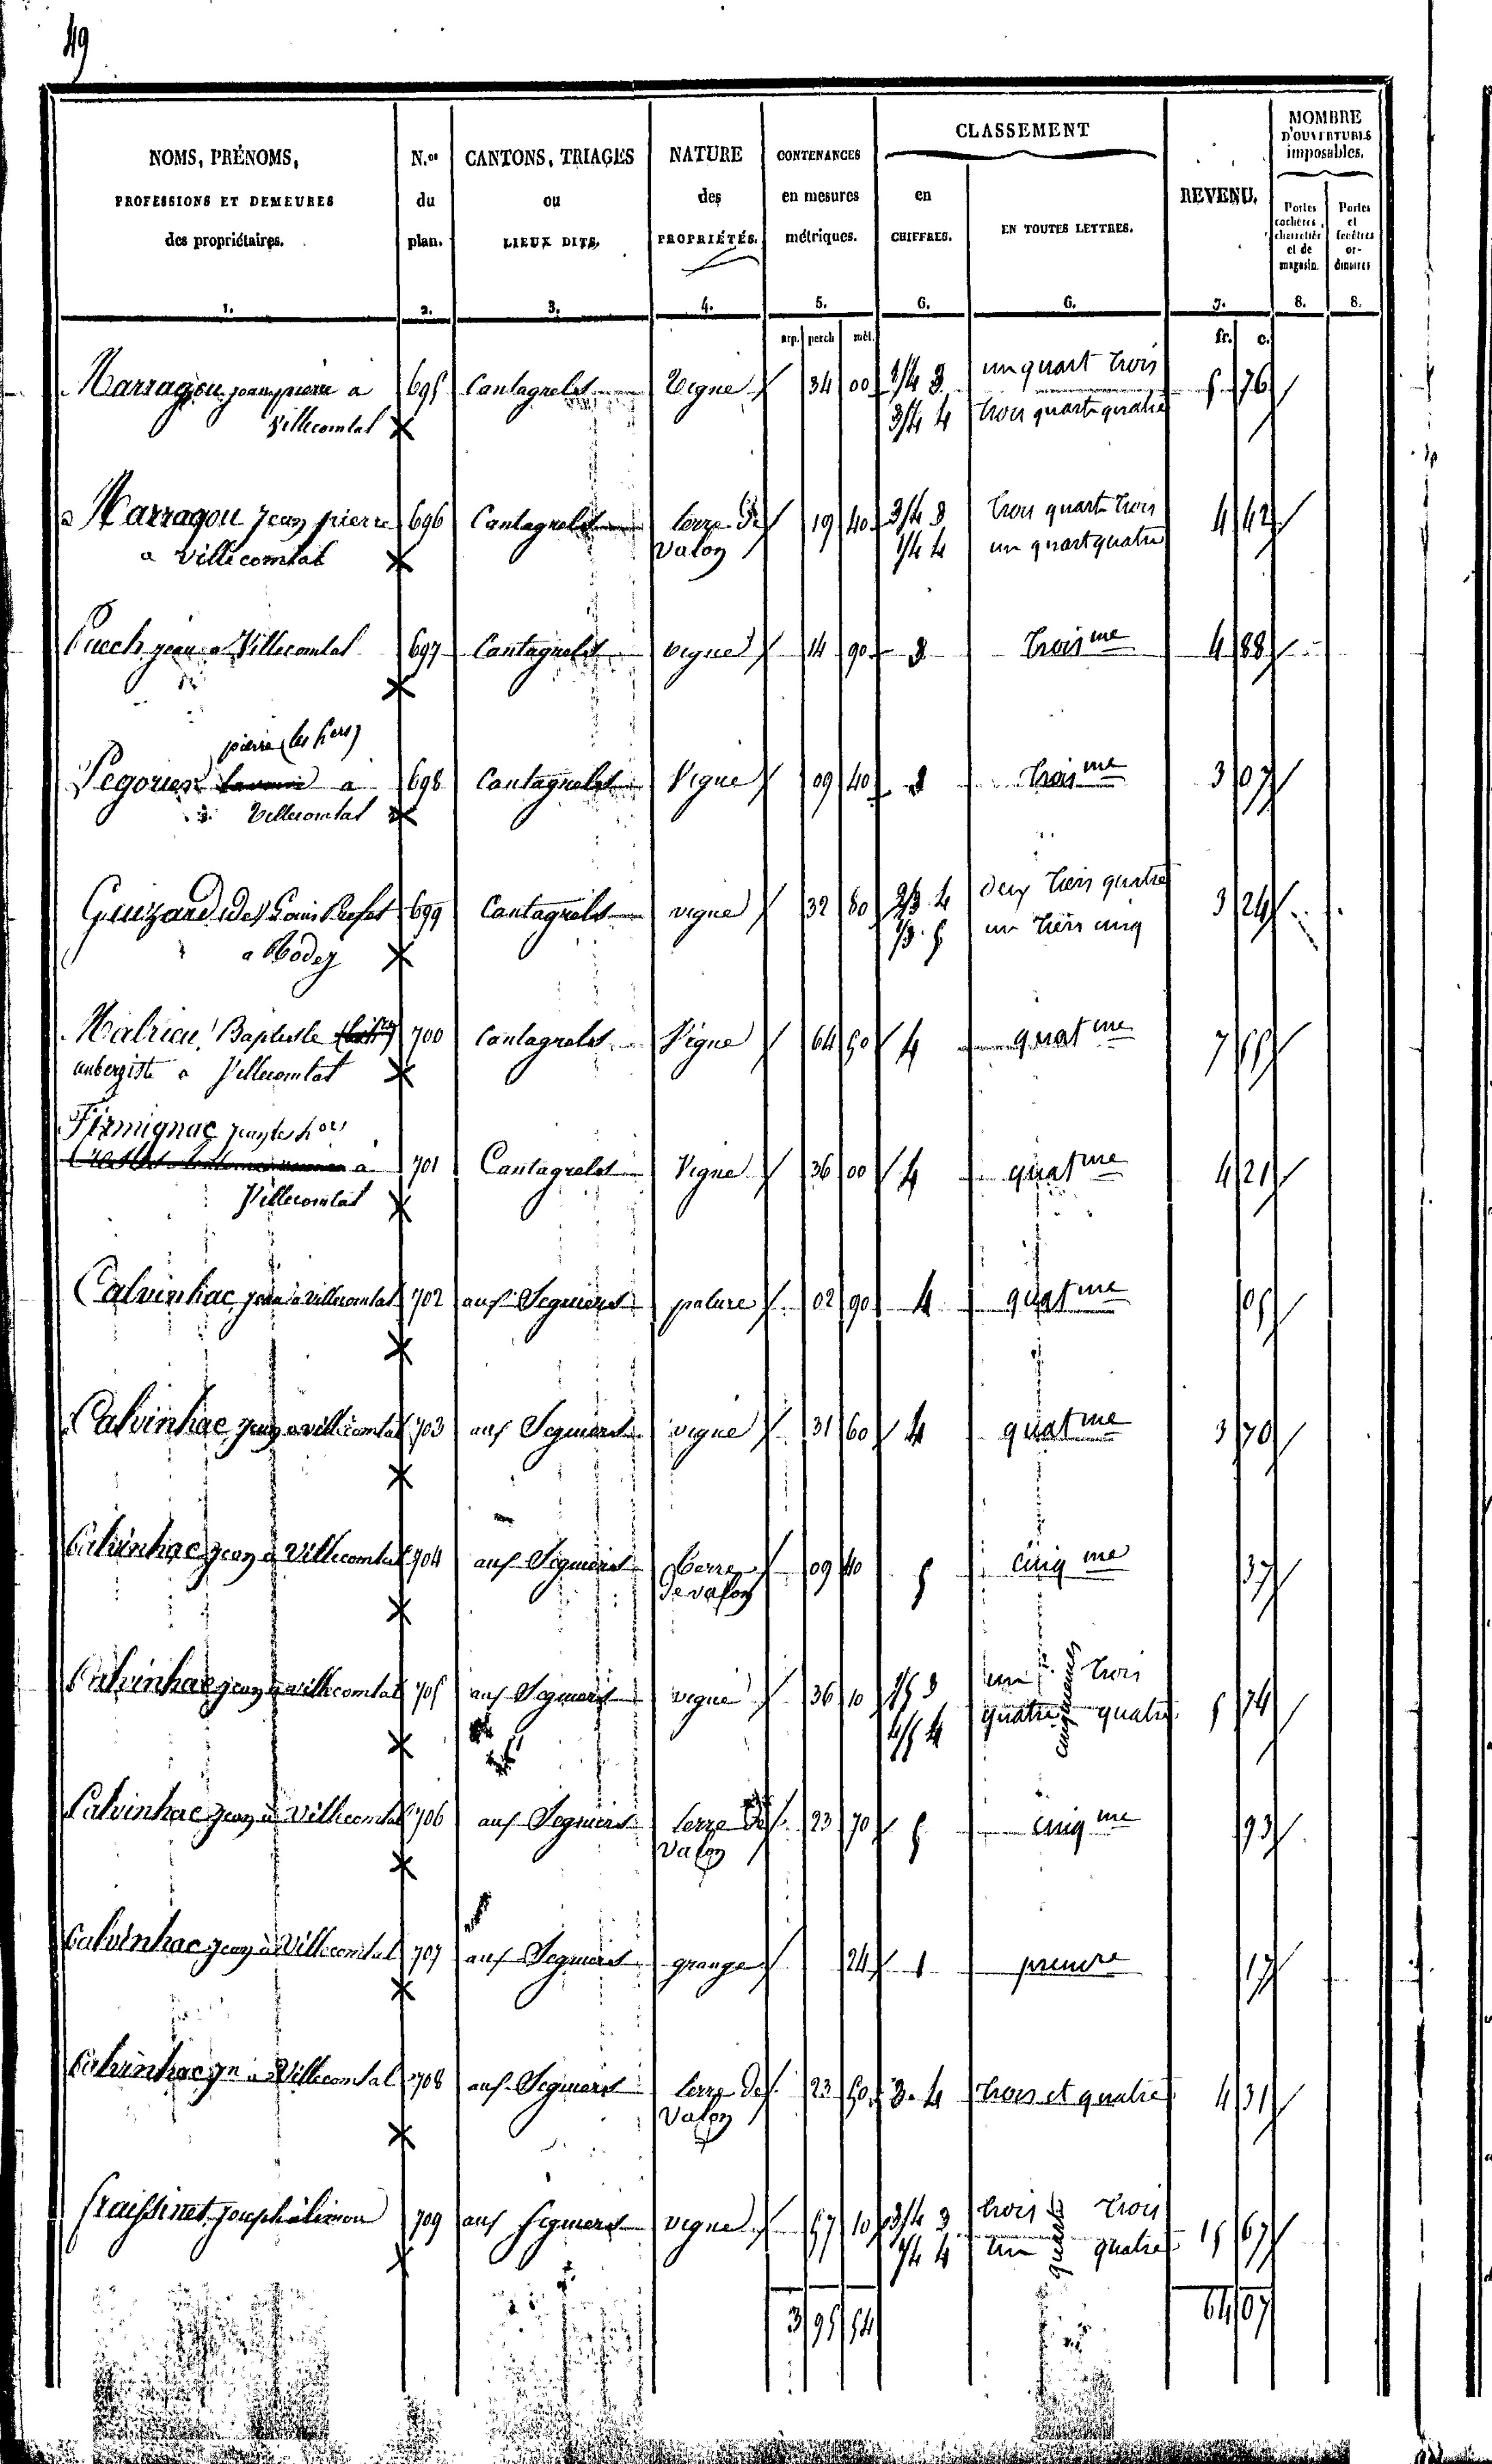 49
NOMS, PRÉNOMS,
PROFESSIONS ET DEMEURES
des propriétaires.
1.
N.os
du
plan.
2.
CANTONS, TRIAGES
ou
LIEUX DITS.
3.
NATURE
des
PROPRIÉTÉS.
4.
CONTENANCES
en mesures
métriques.
5.
CLASSEMENT
en
CHIFFRES.
6.
EN TOUTES LETTRES.
6.
REVENU.
7.
NOMBRE
D'OUVERTURES
imposables.
Portes
cochères,
charretières
et de
magasin.
8.
Portes
et
fenêtres
or-
dinaires
8.
arp. perch. mèt. fr. c.
Marragou jean pierre a 695 Cantagrelet Vigne 34 00 1/4 3 un quart trois 5 76
Villecomtal 3/4 4 trois quart quatre
Marragou Jean pierre 696 Cantagrelet terre de 19 40 3/4 3 trois quart trois 4 42
a Villecomtal valon 1/4 4 un quart quatre
Puech jean a Villecomtal 697 Cantagrelet vigne 14 90 3 troisme 4 88
pierre (les hers)
Pegorier a 698 Cantagrelet Vigne 09 40 3 troisme 3 07
Villecomtal
Guizard (de) Louis Prefet 699 Cantagrelet vigne 32 80 2/3 4 deux tiers quatre 3 24
a Rodez 1/3 5 un tiers cinq
Malrieu Baptiste 700 Cantagrelet Vigne 64 50 4 quatme 7 55
aubergiste a Villecomtal
Firmignac jean les hers
a 701 Cantagrelet Vigne 36 00 4 quatme 4 21
Villecomtal
Calvinhac jean a villecomtal 702 aux Seguiers pature 02 90 4 quatme 05
Calvinhac jean a villecomtal 703 aux Seguiers vigne 31 60 4 quatme 3 70
Calvinhac jean a Villecomtal 704 aux Seguiers terre 09 40 5 cinqme 37
de valon
Calvinhac jean a villecomtal 705 aux Seguiers vigne 36 10 1/5 3 un trois 5 74
4/5 4 quatre cinquiemes quatre
Calvinhac jean a Villecomtal 706 aux Seguiers terre de 23 70 5 cinqme 93
valon
Calvinhac jean à Villecomtal 707 aux Seguiers grange 24 1 premre 17
Calvinhac jn a Villecomtal 708 aux Seguiers terre de 23 50 3. 4 trois et quatre 4 31
valon
fraissinet joseph à limon 709 aux Seguiers vigne 57 10 3/4 3 trois trois 15 67
1/4 4 un quarts quatre
3 95 54 64 07